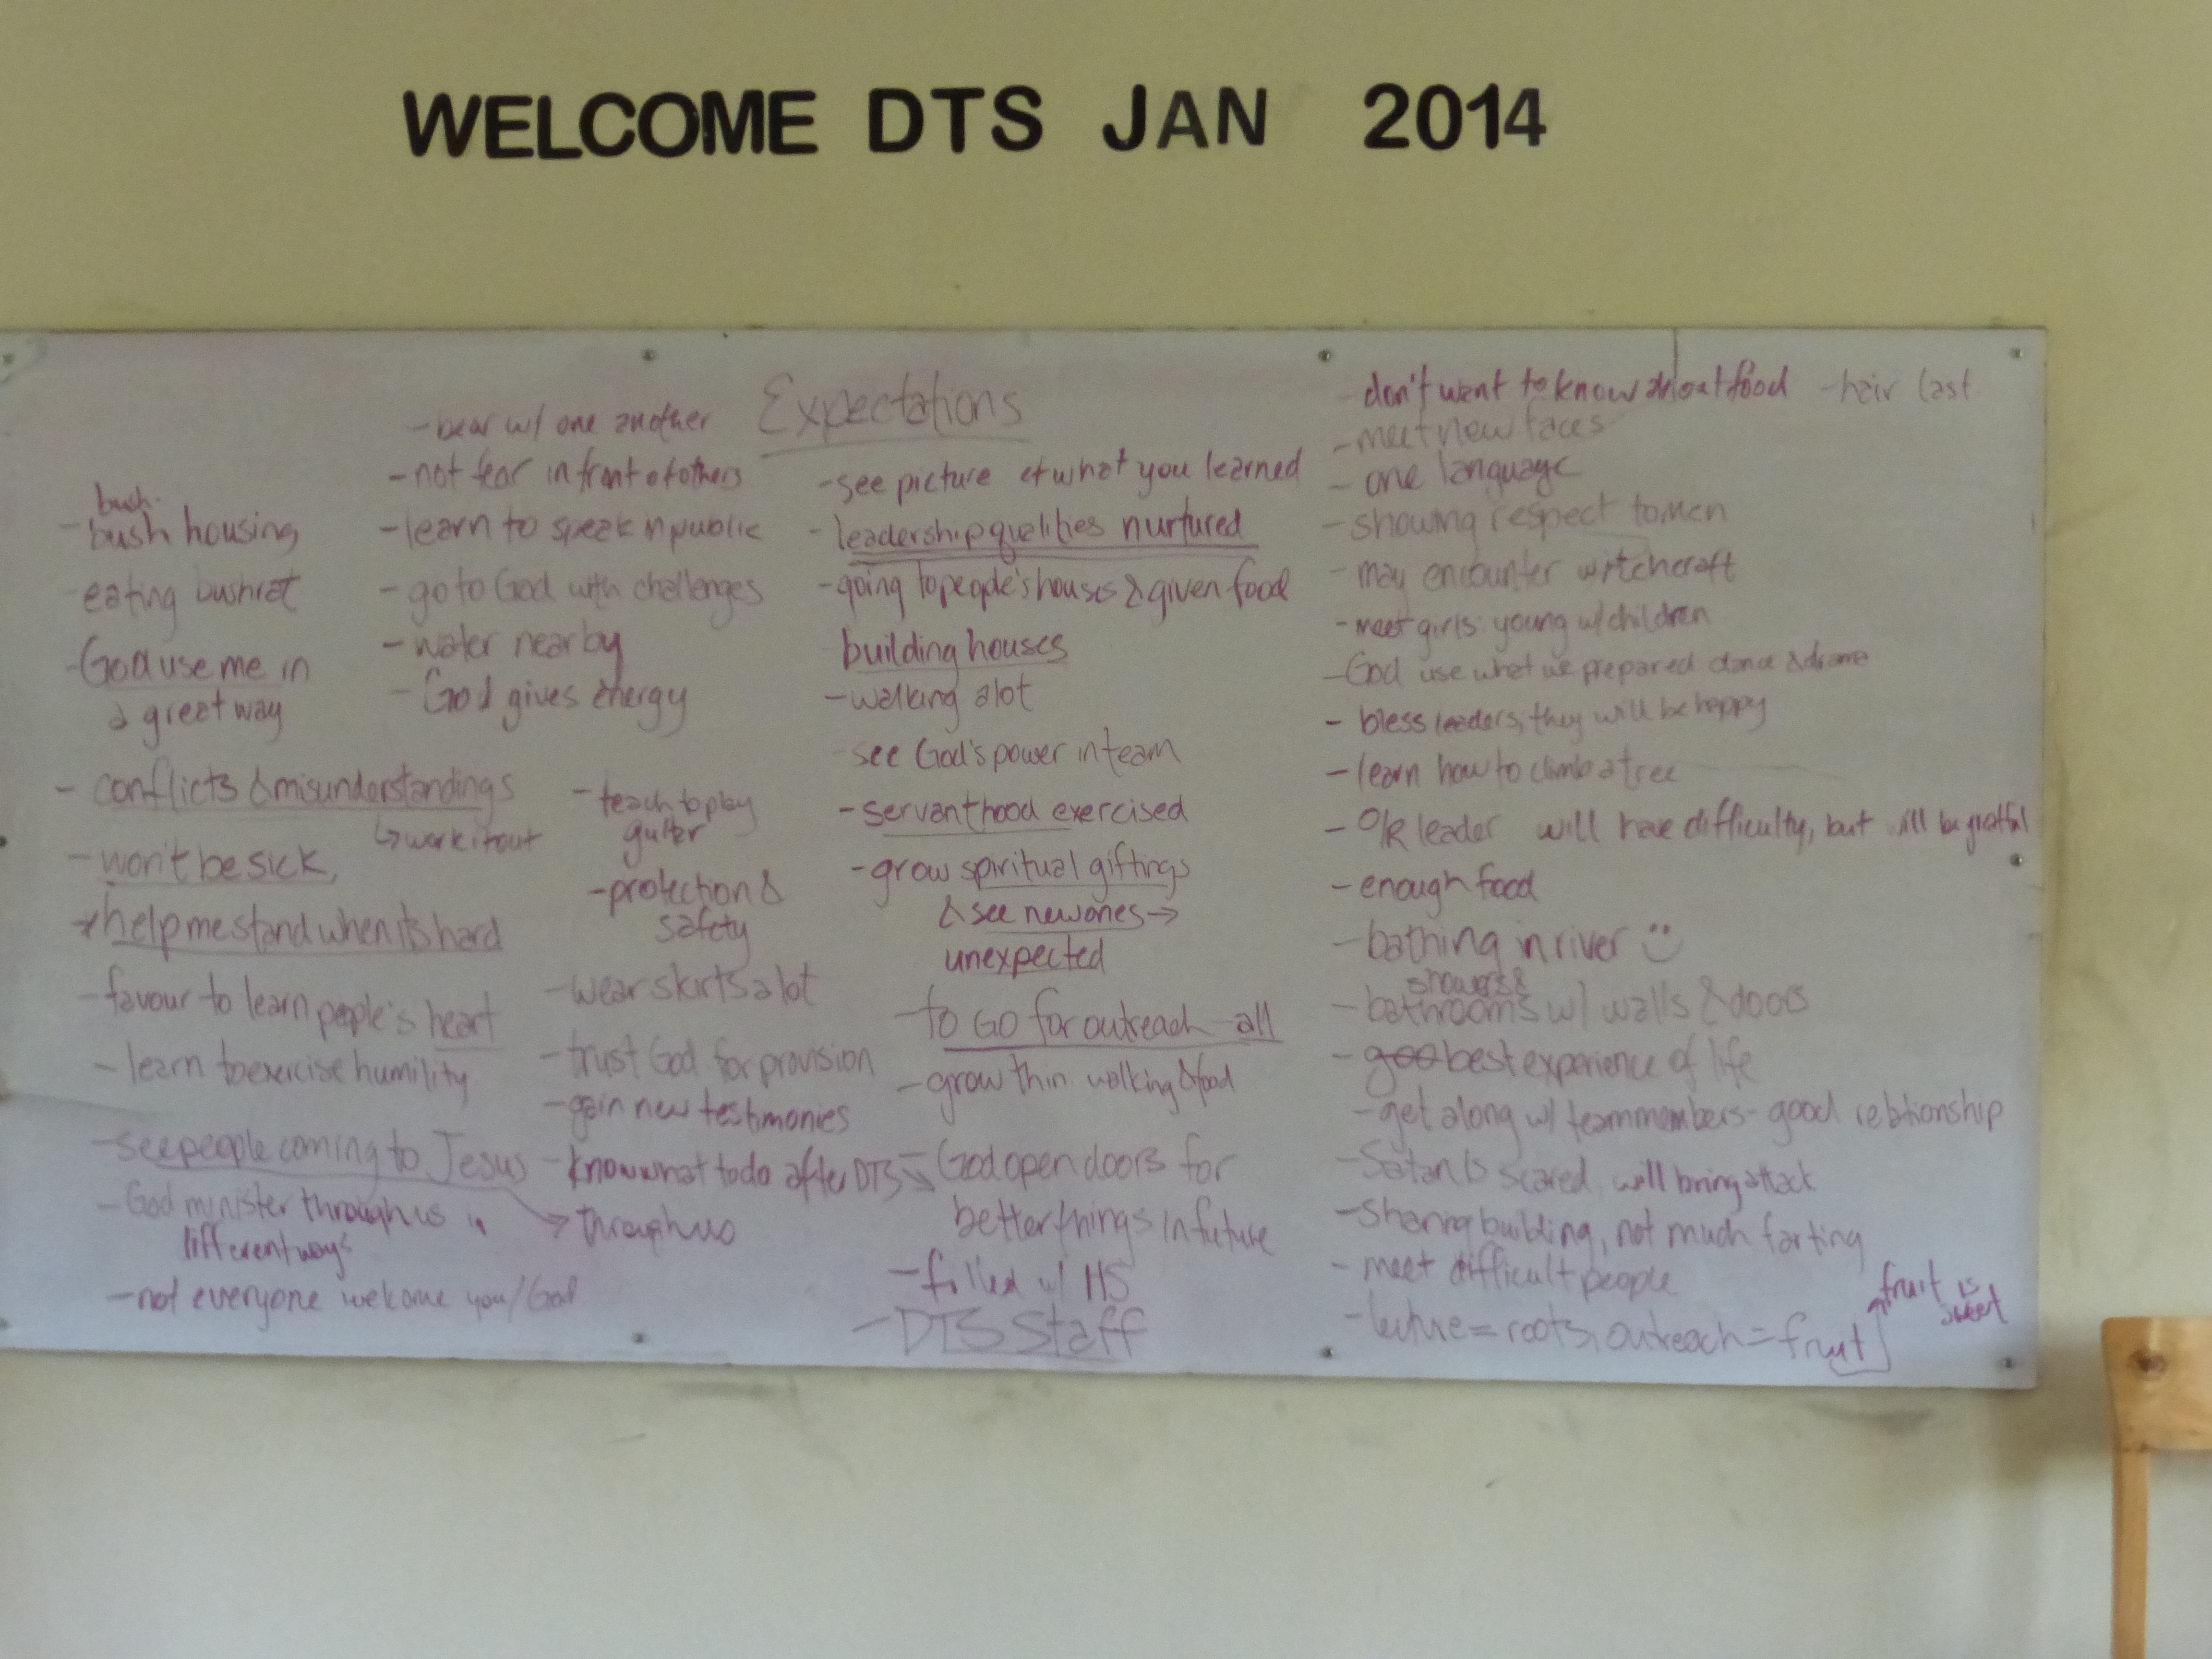 WELCOME DTS JAN 2014
Expectations
bush
- bush housing
- eating bushrat
- God use me in
a great way
- conflicts & misunderstandings
↳ work it out
- won't be sick,
help me stand when its hard
- favour to learn people's heart
- learn to exercise humility
- see people coming to Jesus
→ through us
- God minister through us in
different ways
- not everyone welcome you/God
- bear w/ one another
- not fear in front of others
- learn to speak in public
- go to God with challenges
- water nearby
- God gives energy
- teach to play
guiter
- protection &
safety
- wear skirts a lot
- trust God for provision
- gain new testimonies
- know what to do after DTS
- see picture of what you learned
- leadership qualities nurtured
- going to people's houses & given food
building houses
- walking alot
see God's power in team
- servanthood exercised
- grow spiritual giftings
& see new ones →
unexpected
- to GO for outreach - all
- grow thin walking & food
- God open doors for
better things in future
- filled w/ HS
- DTS Staff
- don't want to know about food - hair last
- meet new faces
- one language
- showing respect to men
- may encounter witchcraft
- meet girls young w/ children
- God use what we prepared dance & drama
- bless leaders, they will be happy
- learn how to climb a tree
- O/R leader will have difficulty, but will be grateful
- enough food
- bathing in river
showers &
- bathrooms w/ walls & doors
- goo best experience of life
- get along w/ team members - good relationship
- Satan is scared, will bring attack
- Sharing building, not much farting
- meet difficult people
- lecture = roots, outreach = fruit
fruit is
sweet